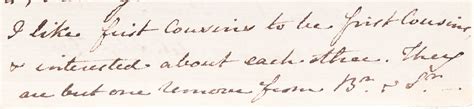 I like first Cousins to be first Cousins,
& interested about each other. They
are but one remove from Br. & Sr.